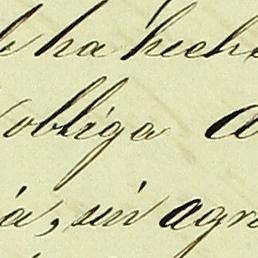 le ha hecho
obliga a
ia, sin agra